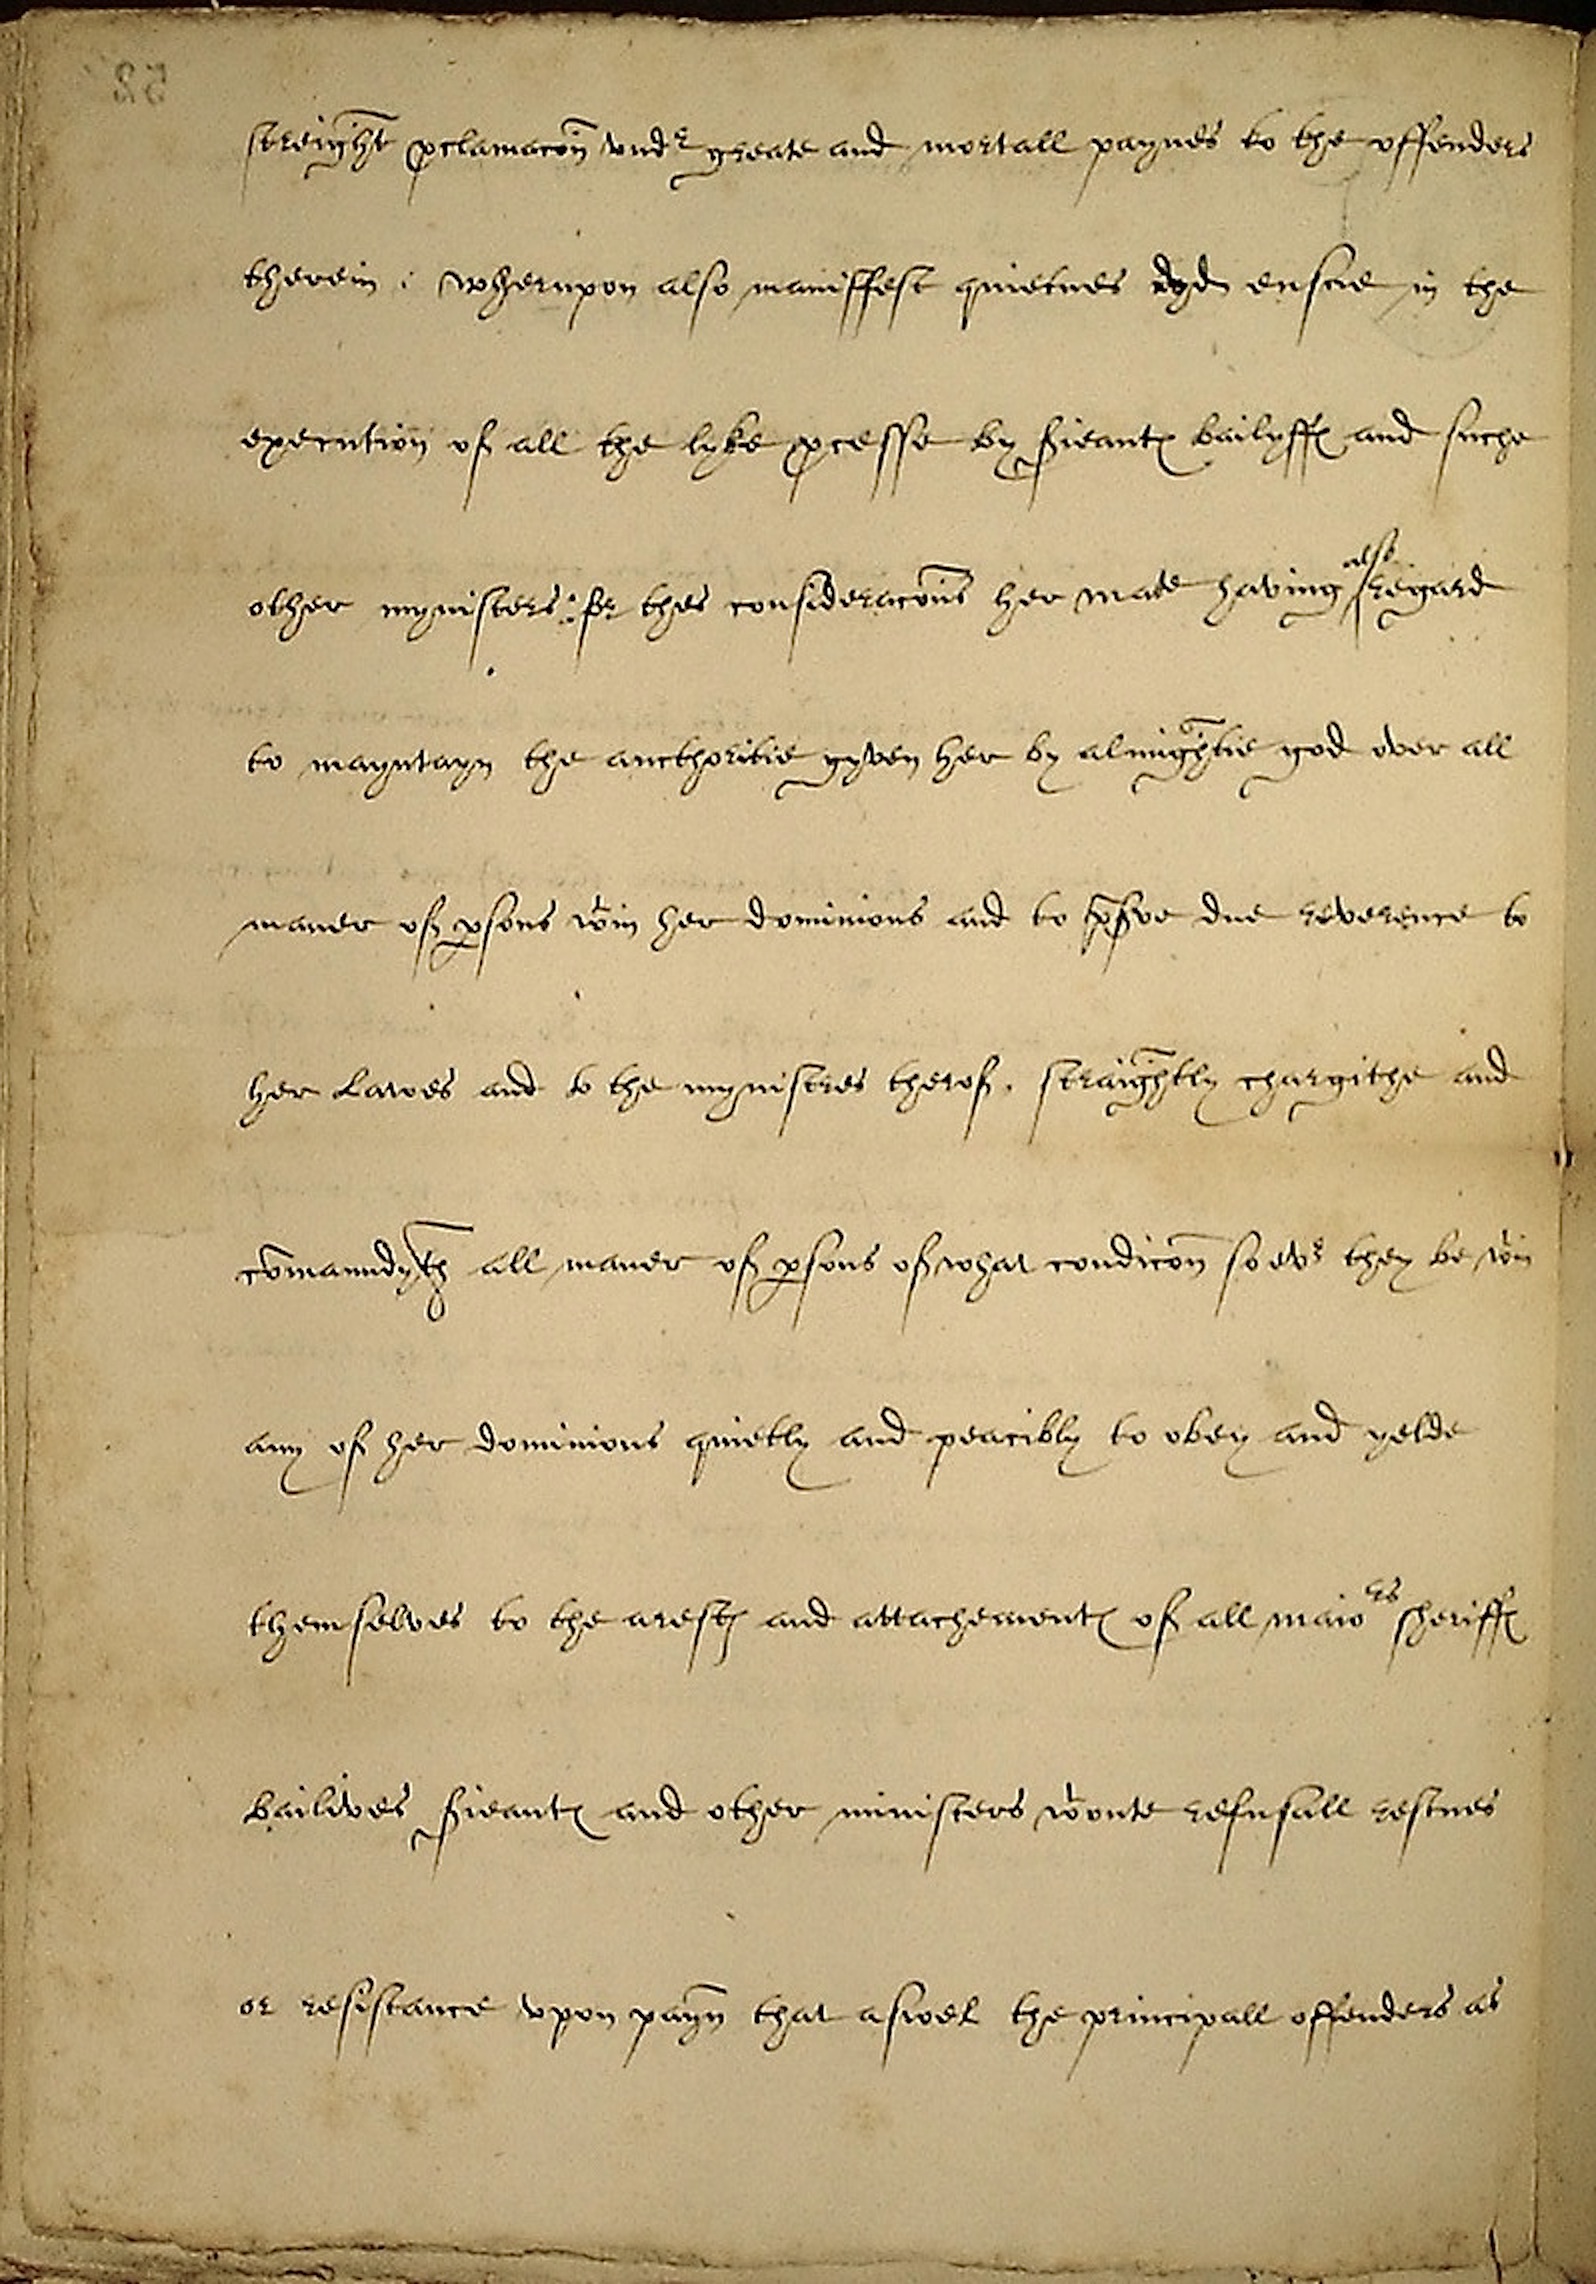 streight ꝓclamacōn vndʳ greate and mortall paynes to the offenders
therein : wherupon also maniffest quietnes dyd ensue in the
execution of all the lyke ꝓcesse by s̓ieantꝭ bailyffꝭ and suche
other mynisters : for thes consideracōns her Matie having also regard
to mayntayn the aucthoritie gyven her by almightie god over all
maner of ꝑsons wᵗin her dominions and to p̄s̓ve due reverence to
her Lawes and to the mynistres therof . straightly chargithe and
cōmaundyth all maner of ꝑsons of what condicōn soevʳ they be wᵗin
any of her dominions quietly and peacibly to obey and yelde
themselves to the arestꝭ and attachementꝭ of all maioʳˢ sheriffꝭ
bailives s̓ieantꝭ and other ministers wᵗoute refusall restues
or resistance vpon payn̄ that aswel the principall offenders as